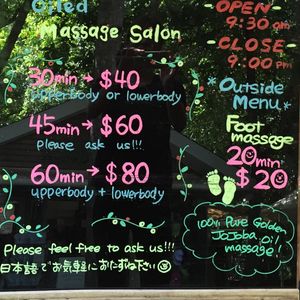 Oiled
Massage Salon
30min → $40
upperbody or lowerbody
45min → $60
Please ask us!!!
60min → $80
upperbody + lowerbody
Please feel free to ask us!!!
日本語でお気軽におたずね下さい
OPEN
9:30 am
CLOSE
9:00 Pm
*Outside
Menu*
Foot
massage
20min
$20
100% Pure Golden
Jojoba Oil
massage!